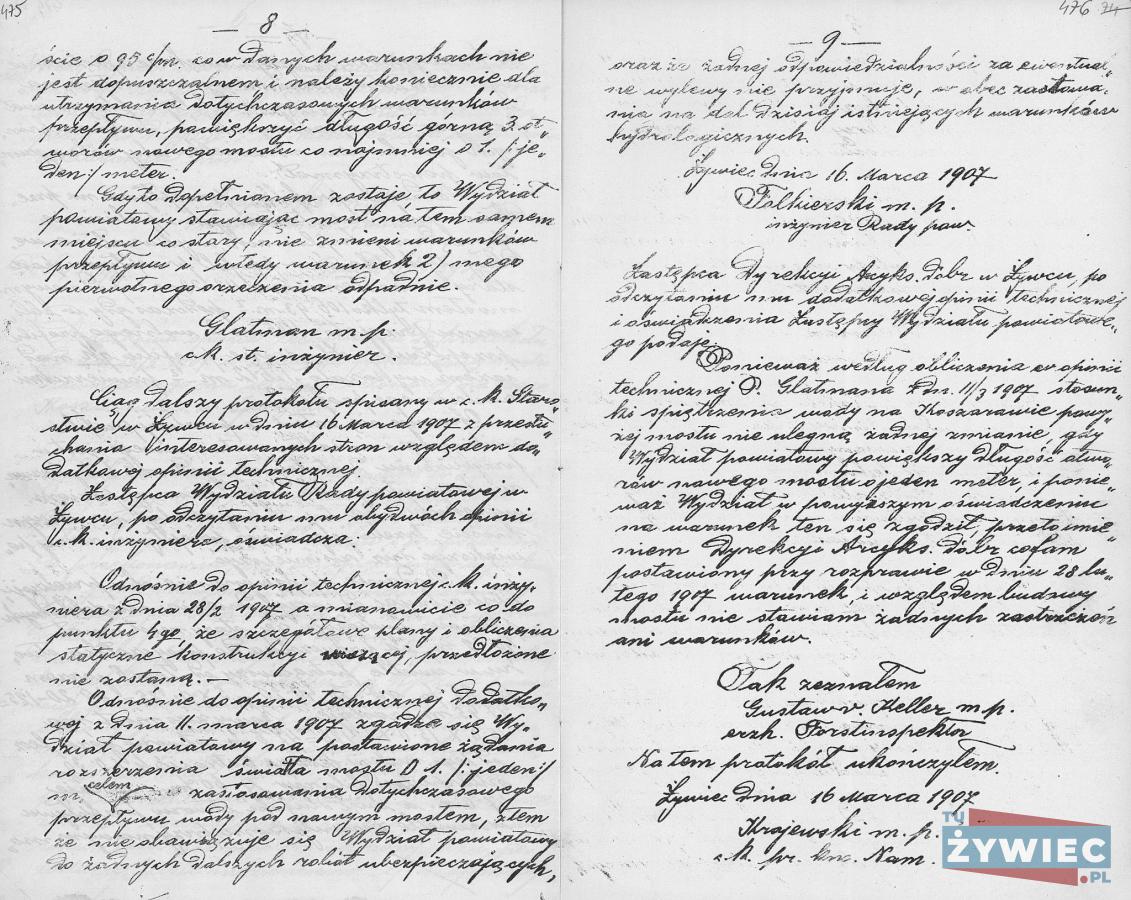 475
— 8 —
ście o 95 c/m, co w danych warunkach nie
jest dopuszczalnem i należy koniecznie dla
utrzymania dotychczasowych warunków
przepływu, powiększyć długość górną 3. ot„
worów nowego mostu co najmniej o 1. /: je„
den :/ meter.
Gdy to dopełnionem zostaje, to Wydział
powiatowy stawiając most na tem samem
miejscu co stary, nie zmieni warunków
przepływu i wtedy warunek 2) mego
pierwotnego orzeczenia odpadnie.
Glatman m.p.
c.k. st. inżynier.
Ciąg dalszy protokołu spisany w c.k. Staro„
stwie w Żywcu w dniu 16 Marca 1907 z przesłu„
chania interesowanych stron względem do„
datkowej opinii technicznej
Zastępca Wydziału Rady powiatowej w
Żywcu, po odczytaniu mu obydwóch opinii
c.k. inżyniera, oświadcza:
Odnośnie do opinii technicznej c.k. inży„
niera z dnia 28/2 1907 a mianowicie co do
punktu 4go, że szczegółowe plany i obliczenia
statyczne konstrukcyi wiszącej, przedłożone
nie zostaną. —
Odnośnie do opinii technicznej dodatko„
wej z dnia 11. marca 1907 zgadza się Wy„
dział powiatowy na postawione żądania
rozszerzenia światła mostu o 1. /: jeden :/
m. celem zastosowania dotychczasowego
przepływu wody pod nowym mostem, z tem
że nie obowiązuje się Wydział powiatowy
do żadnych dalszych robót ubezpieczających,
476 74
— 9 —
oraz że żadnej odpowiedzialności za ewentual„
ne wylewy nie przyjmuje, wobec zastowa„
nia na dal dzisiaj istniejących warunków
hydrologicznych.
Żywiec dnia 16. Marca 1907
Folkierski m.p.
inżynier Rady pow.
Zastępca Dyrekcyi Arcyks. dóbr w Żywcu, po
odczytaniu mu dodatkowej opinii technicznej
i oświadczenia Zastępcy Wydziału powiatowe„
go podaje:
Ponieważ według obliczenia w opinii
technicznej P. Glatmana z dn. 11/3 1907 stosun„
ki spiętrzenia wody na Koszarawie powy„
żej mostu nie ulegną żadnej zmianie, gdy
Wydział powiatowy powiększy długość otwo„
rów nowego mostu o jeden meter, i ponie„
waż Wydział w powyższym oświadczeniu
na warunek ten się zgodził, przeto imie„
niem Dyrekcyi Arcyks. dóbr cofam
postawiony przy rozprawie w dniu 28 lu„
tego 1907 warunek, i względem budowy
mostu nie stawiam żadnych zastrzeżeń
ani warunków.
Tak zeznałem
Gustaw v. Keller m.p.
erzh. Forstinspektor
Na tem protokół ukończyłem.
Żywiec dnia 16 Marca 1907
Krajewski m.p.
c.k. pr. Nam.
TU
ŻYWIEC
.PL